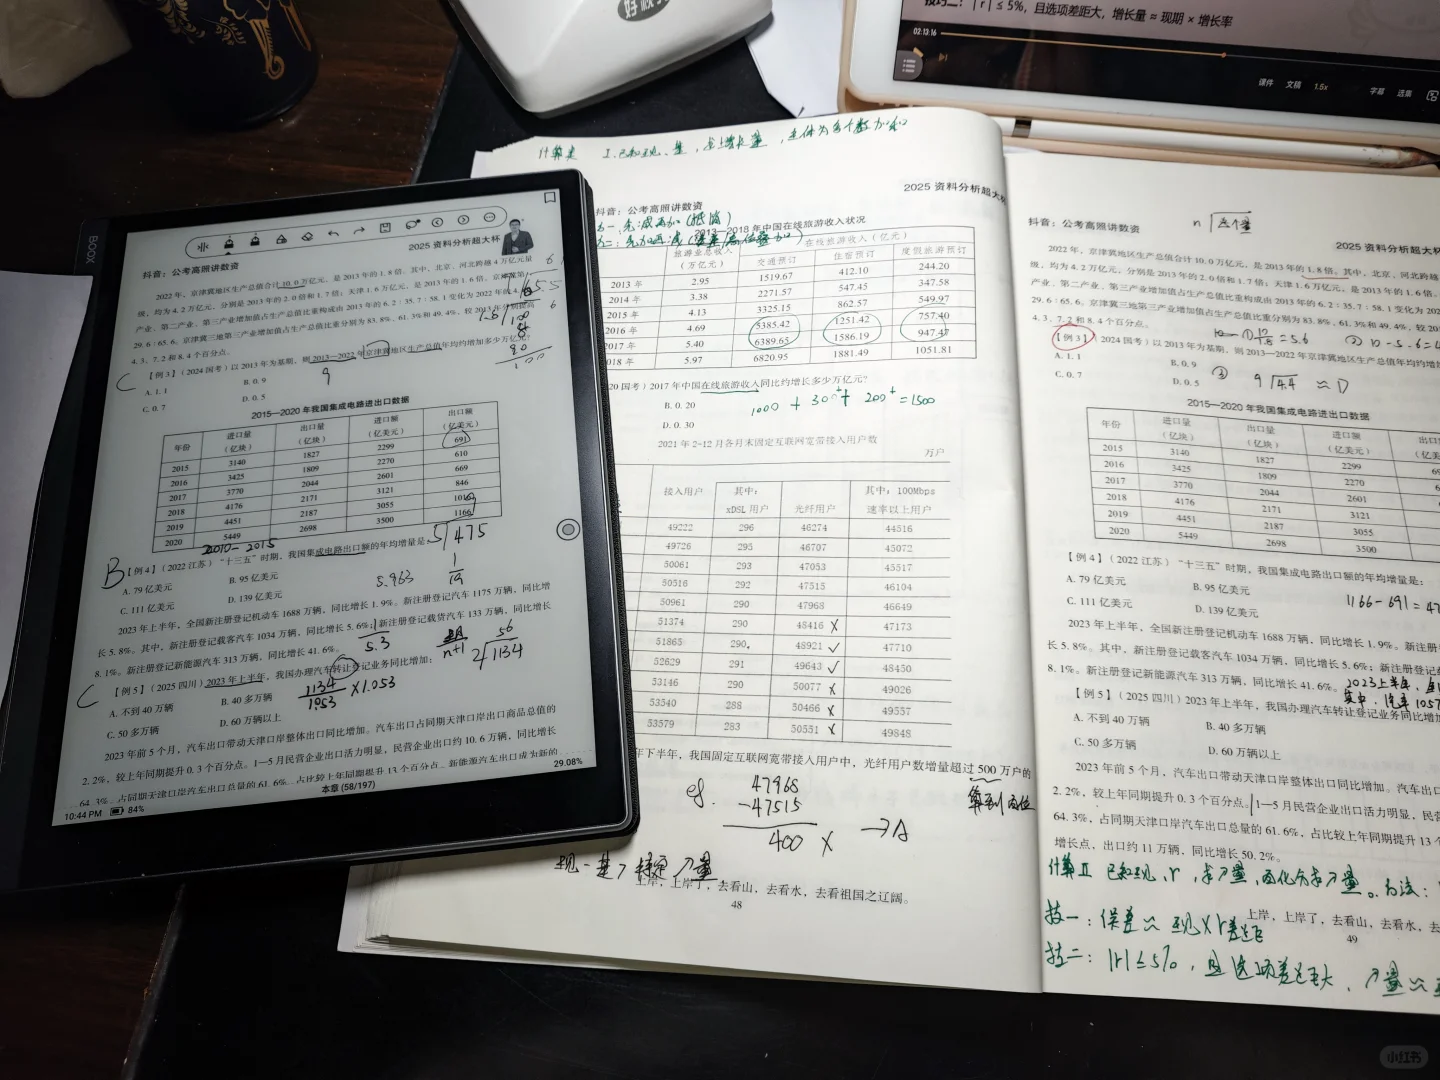 技巧二：|r| ≤ 5%，且选项差距大，增长量 ≈ 现期 × 增长率
02:13:16
课件 文稿 1.5x 字幕 选集
BOOX
2025 资料分析超大杯
抖音：公考高照讲数资
2022 年，京津冀地区生产总值合计 10.0 万亿元，是 2013 年的 1.8 倍。其中，北京、河北跨越 4 万亿元量
级，均为 4.2 万亿元，分别是 2013 年的 2.0 倍和 1.7 倍；天津 1.6 万亿元，是 2013 年的 1.6 倍。京津冀第一
产业、第二产业、第三产业增加值占生产总值比重构成由 2013 年的 6.2：35.7：58.1 变化为 2022 年的 4.
29.6：65.6。京津冀三地第三产业增加值占生产总值比重分别为 83.8%、61.3%和 49.4%，较 2013 年分别提高
4.3、7.2 和 8.4 个百分点。
【例 3】（2024 国考）以 2013 年为基期，则 2013—2022 年京津冀地区生产总值年均约增加多少万亿元？
A. 1.1
B. 0.9
C. 0.7
D. 0.5
C
9
2015—2020 年我国集成电路进出口数据
年份 进口量（亿块） 出口量（亿块） 进口额（亿美元） 出口额（亿美元）
2015 3140 1827 2299 691
2016 3425 1809 2270 610
2017 3770 2044 2601 669
2018 4176 2171 3121 846
2019 4451 2187 3055 1016
2020 5449 2698 3500 1166
2010-2015
5 475
B
【例 4】（2022 江苏）“十三五”时期，我国集成电路出口额的年均增量是：
A. 79 亿美元
B. 95 亿美元
C. 111 亿美元
D. 139 亿美元
5.963
1
19
2023 年上半年，全国新注册登记机动车 1688 万辆，同比增长 1.9%。新注册登记汽车 1175 万辆，同比增
长 5.8%。其中，新注册登记载客汽车 1034 万辆，同比增长 5.6%；新注册登记载货汽车 133 万辆，同比增长
8.1%。新注册登记新能源汽车 313 万辆，同比增长 41.6%。
5.3
n+1
56
2 1134
C
【例 5】（2025 四川）2023 年上半年，我国办理汽车转让登记业务同比增加：
A. 不到 40 万辆
B. 40 多万辆
C. 50 多万辆
D. 60 万辆以上
1134
1053
×1.053
2023 年前 5 个月，汽车出口带动天津口岸整体出口同比增加。汽车出口占同期天津口岸出口商品总值的
2.2%，较上年同期提升 0.3 个百分点。1—5 月民营企业出口活力明显，民营企业出口约 10.6 万辆，同比增长
64.3%，占同期天津口岸汽车出口总量的 61.6%，占比较上年同期提升 13 个百分点，新能源汽车出口成为新的
29.08%
本章 (58/197)
10:44 PM 84%
计算类 I.已知现、基，求增长量，主体为多个数加和
2025 资料分析超大杯
抖音：公考高照讲数资
2013—2018 年中国在线旅游收入状况
旅游业总收入（万亿元） 在线旅游收入（亿元）
交通预订 住宿预订 度假旅游预订
2013 年 2.95 1519.67 412.10 244.20
2014 年 3.38 2271.57 547.45 347.58
2015 年 4.13 3325.15 862.57 549.97
2016 年 4.69 5385.42 1251.42 757.40
2017 年 5.40 6389.65 1586.19 947.47
018 年 5.97 6820.95 1881.49 1051.81
20 国考）2017 年中国在线旅游收入同比约增长多少万亿元？
B. 0.20
D. 0.30
1000 + 300+ + 200+ = 1500
2021 年 2-12 月各月末固定互联网宽带接入用户数
万户
接入用户 其中：xDSL 用户 光纤用户 其中：100Mbps 速率以上用户
49222 296 46274 44516
49726 295 46707 45072
50061 293 47053 45517
50516 292 47515 46104
50961 290 47968 46649
51374 290 48416 X 47173
51865 290 48921 √ 47710
52629 291 49643 √ 48450
53146 290 50077 X 49026
53540 288 50466 X 49557
53579 283 50551 X 49848
年下半年，我国固定互联网宽带接入用户中，光纤用户数增量超过 500 万户的
算到两位
eg.
47968
-47515
400 X
→A
上岸，上岸了，去看山、去看水，去看祖国之辽阔。
48
抖音：公考高照讲数资
2025 资料分析超大
2022 年，京津冀地区生产总值合计 10.0 万亿元，是 2013 年的 1.8 倍。其中，北京、河北跨越
级，均为 4.2 万亿元，分别是 2013 年的 2.0 倍和 1.7 倍；天津 1.6 万亿元，是 2013 年的 1.6 倍。
产业、第二产业、第三产业增加值占生产总值比重构成由 2013 年的 6.2：35.7：58.1 变化为 202
29.6：65.6。京津冀三地第三产业增加值占生产总值比重分别为 83.8%、61.3%和 49.4%，较 20
4.3、7.2 和 8.4 个百分点。
【例 3】（2024 国考）以 2013 年为基期，则 2013—2022 年京津冀地区生产总值年均约增
A. 1.1
B. 0.9
C. 0.7
D. 0.5
= 5.6
② 10-5.6=4
③ 9 44 ≈ D
2015—2020 年我国集成电路进出口数据
年份 进口量（亿块） 出口量（亿块） 进口额（亿美元） 出口
2015 3140 1827 2299
2016 3425 1809 2270
2017 3770 2044 2601
2018 4176 2171 3121
2019 4451 2187 3055
2020 5449 2698 3500
【例 4】（2022 江苏）“十三五”时期，我国集成电路出口额的年均增量是：
A. 79 亿美元
B. 95 亿美元
C. 111 亿美元
D. 139 亿美元
1166-691=47
2023 年上半年，全国新注册登记机动车 1688 万辆，同比增长 1.9%。新注册
长 5.8%。其中，新注册登记载客汽车 1034 万辆，同比增长 5.6%；新注册登记
8.1%。新注册登记新能源汽车 313 万辆，同比增长 41.6%。
2023上半年，
其中，汽车 1057
【例 5】（2025 四川）2023 年上半年，我国办理汽车转让登记业务同比增加
A. 不到 40 万辆
B. 40 多万辆
C. 50 多万辆
D. 60 万辆以上
2023 年前 5 个月，汽车出口带动天津口岸整体出口同比增加。汽车出口
2.2%，较上年同期提升 0.3 个百分点。1—5 月民营企业出口活力明显，民营
64.3%，占同期天津口岸汽车出口总量的 61.6%，占比较上年同期提升 13 个
增长点，出口约 11 万辆，同比增长 50.2%。
计算Ⅱ 已知现、r，求↗量，西化为求↗量。方法：
技一：误差≈现×r差距
技二：|r|≤5%，且选项差距大，↗量≈
上岸，上岸了，去看山、去看水，去
49
小红书